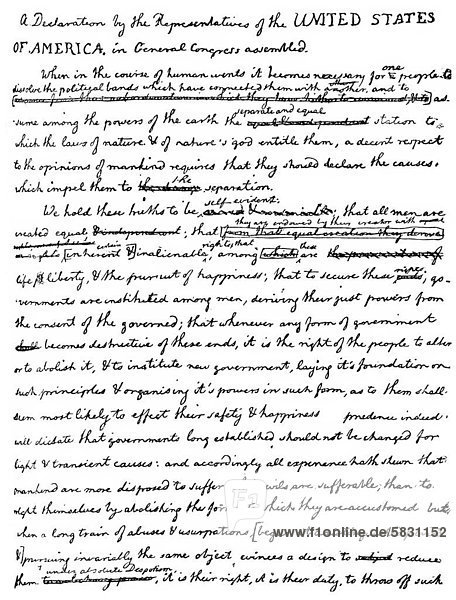 A Declaration by the Representatives of the UNITED STATES
OF AMERICA, in General Congress assembled.
When in the course of human events it becomes necessary for one people to
dissolve the political bands which have connected them with another, and to
as-
sume among the powers of the earth the separate and equal station to
which the laws of nature & of nature's god entitle them, a decent respect
to the opinions of mankind requires that they should declare the causes
which impel them to the separation.
We hold these truths to be self-evident; that all men are
created equal & independent; that they are endowed by their creator with
from that equal creation they derive
certain [inherent &] inalienable rights; that among [which] these are
life, & liberty, & the pursuit of happiness; that to secure these rights, go-
vernments are instituted among men, deriving their just powers from
the consent of the governed; that whenever any form of government
shall becomes destructive of these ends, it is the right of the people to alter
or to abolish it, & to institute new government, laying it's foundation on
such principles & organising it's powers in such form, as to them shall
seem most likely to effect their safety & happiness prudence indeed
will dictate that governments long established should not be changed for
light & transient causes: and accordingly all experience hath shewn that
mankind are more disposed to suffer while evils are sufferable, than to
right themselves by abolishing the forms to which they are accustomed but
when a long train of abuses & usurpations [
& pursuing invariably the same object, evinces a design to subject reduce
them under absolute Despotism, it is their right, it is their duty, to throw off such
F1
www.f1online.de/5831152